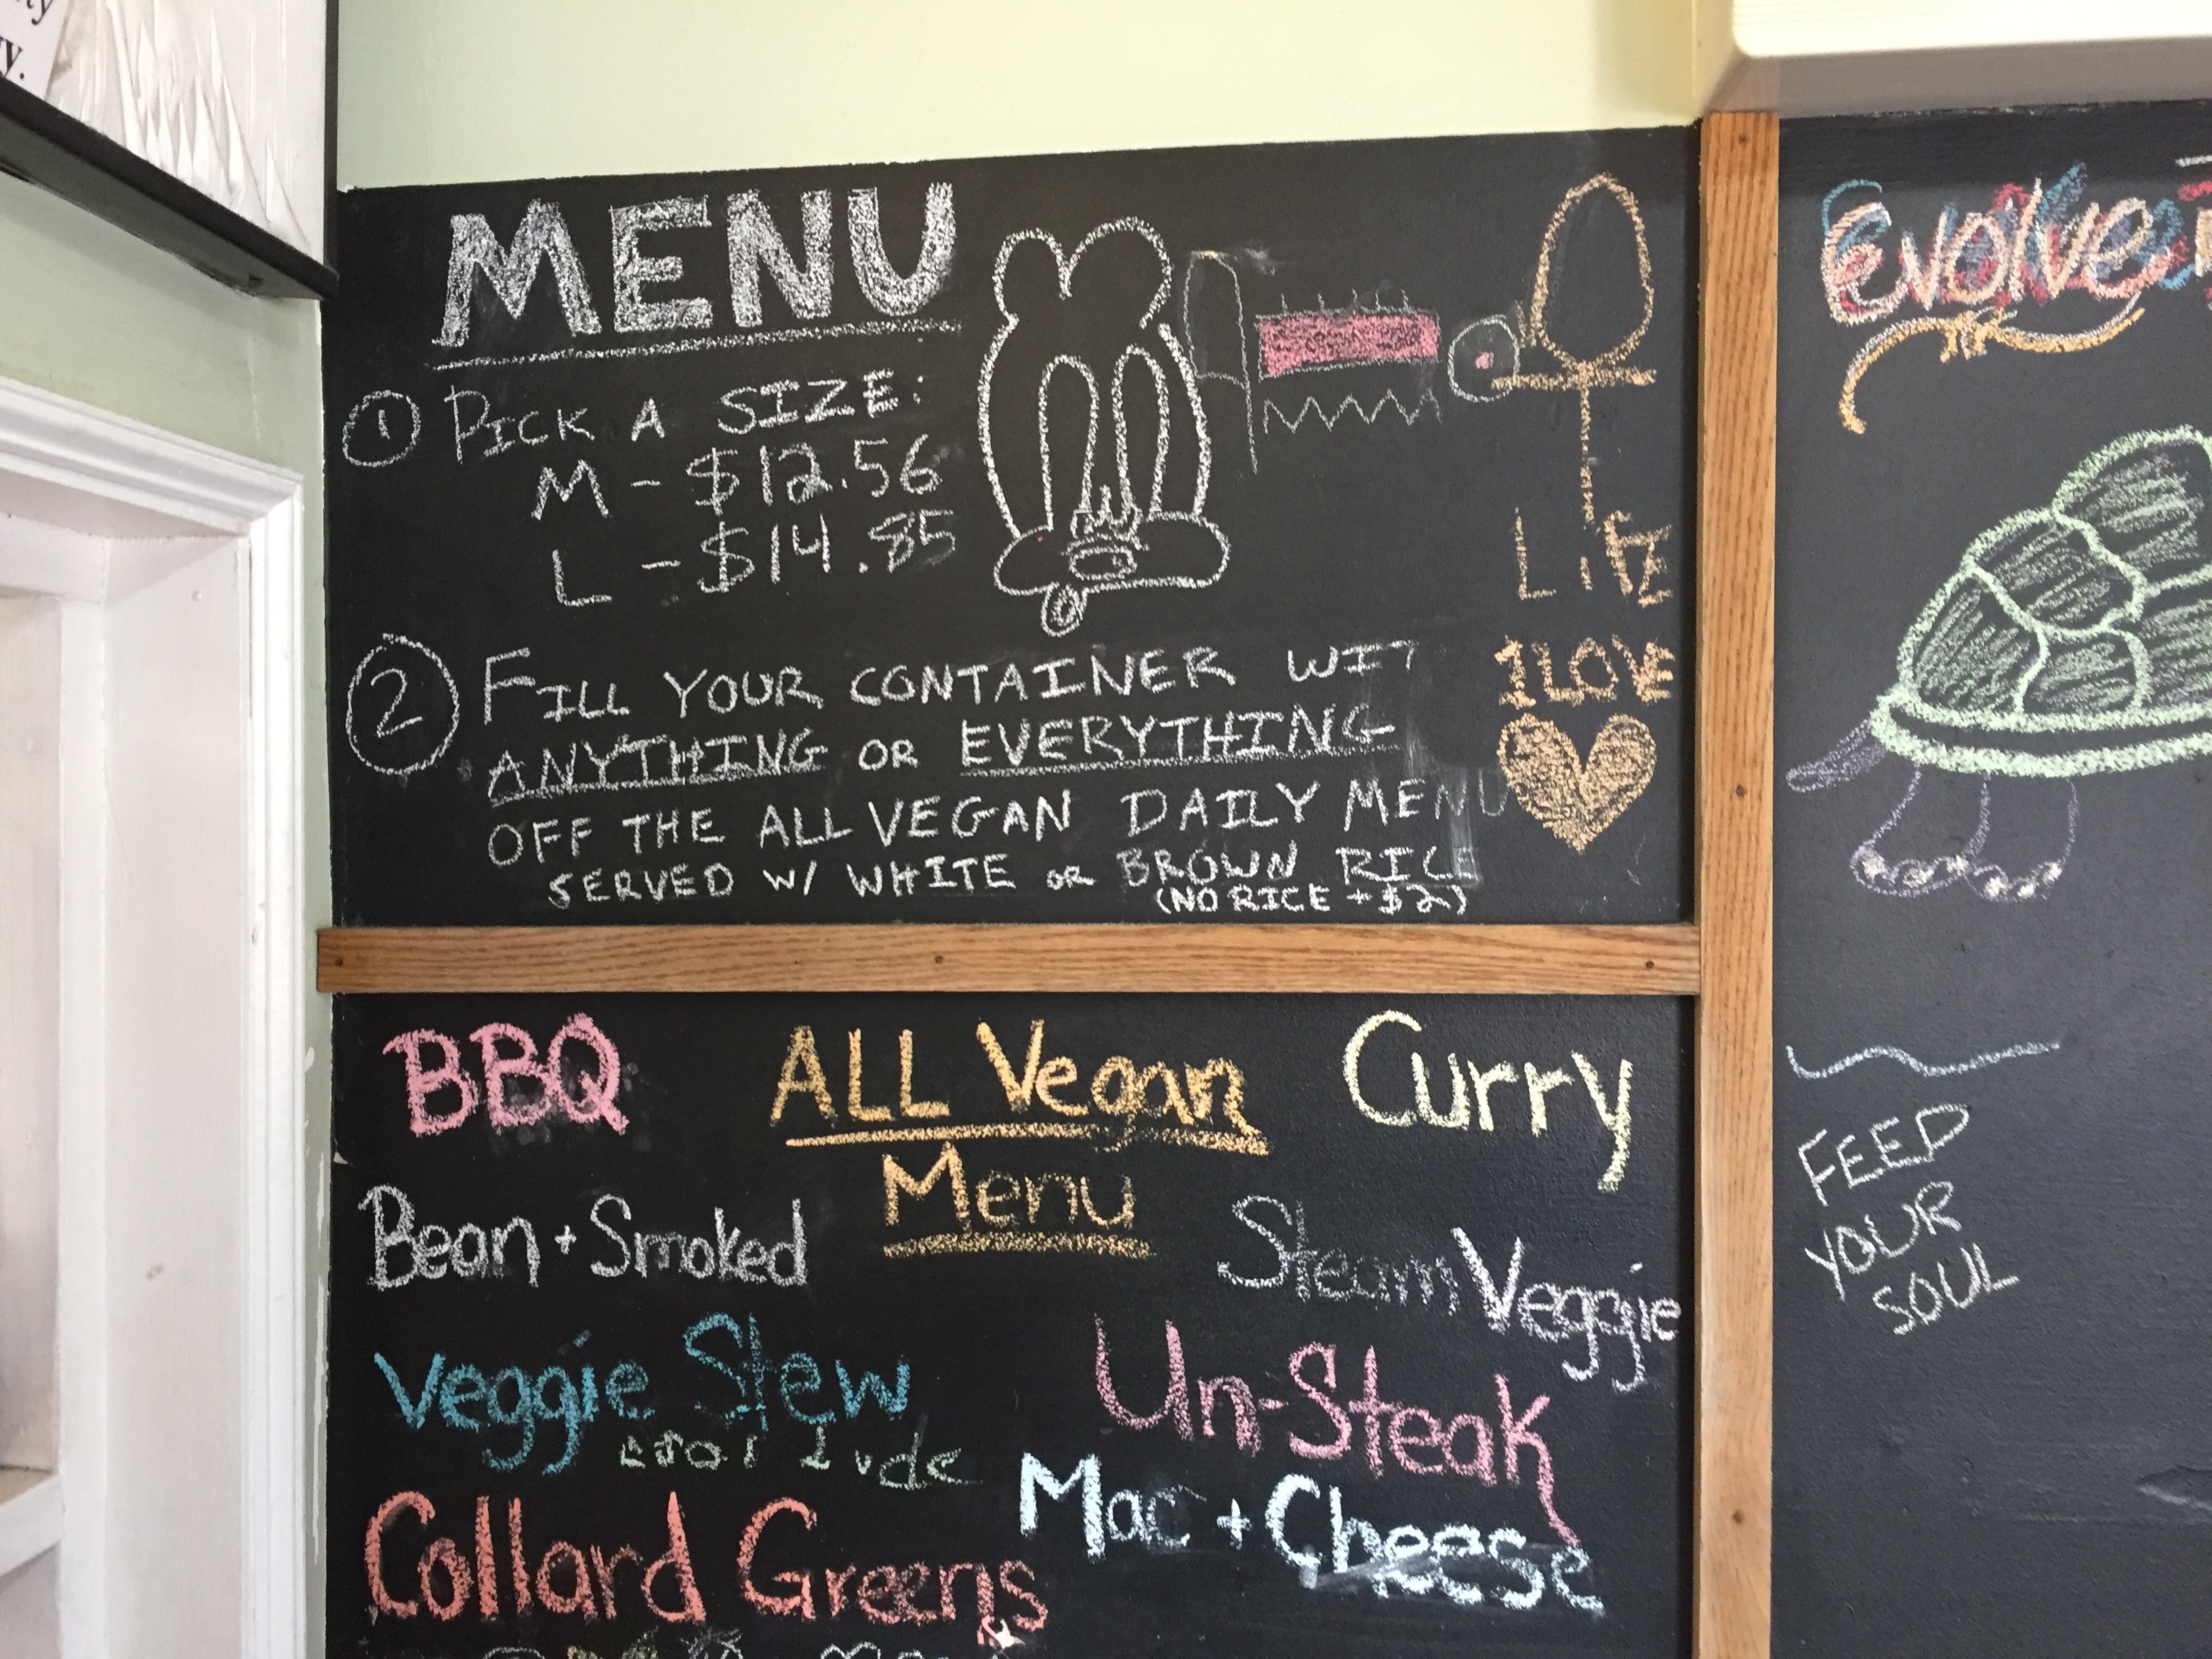 MENU
1 PICK A SIZE:
M - $12.56
L - $14.85
2 FILL YOUR CONTAINER WIT
ANYTHING OR EVERYTHING
OFF THE ALL VEGAN DAILY MENU
SERVED W/ WHITE OR BROWN RICE
(NO RICE + $2)
LIFE
I LOVE
BBQ
ALL Vegan
Menu
Curry
Bean + Smoked
Steam Veggie
Veggie Stew
Un-Steak
Mac + Cheese
Collard Greens
Evolve
FEED
YOUR
SOUL